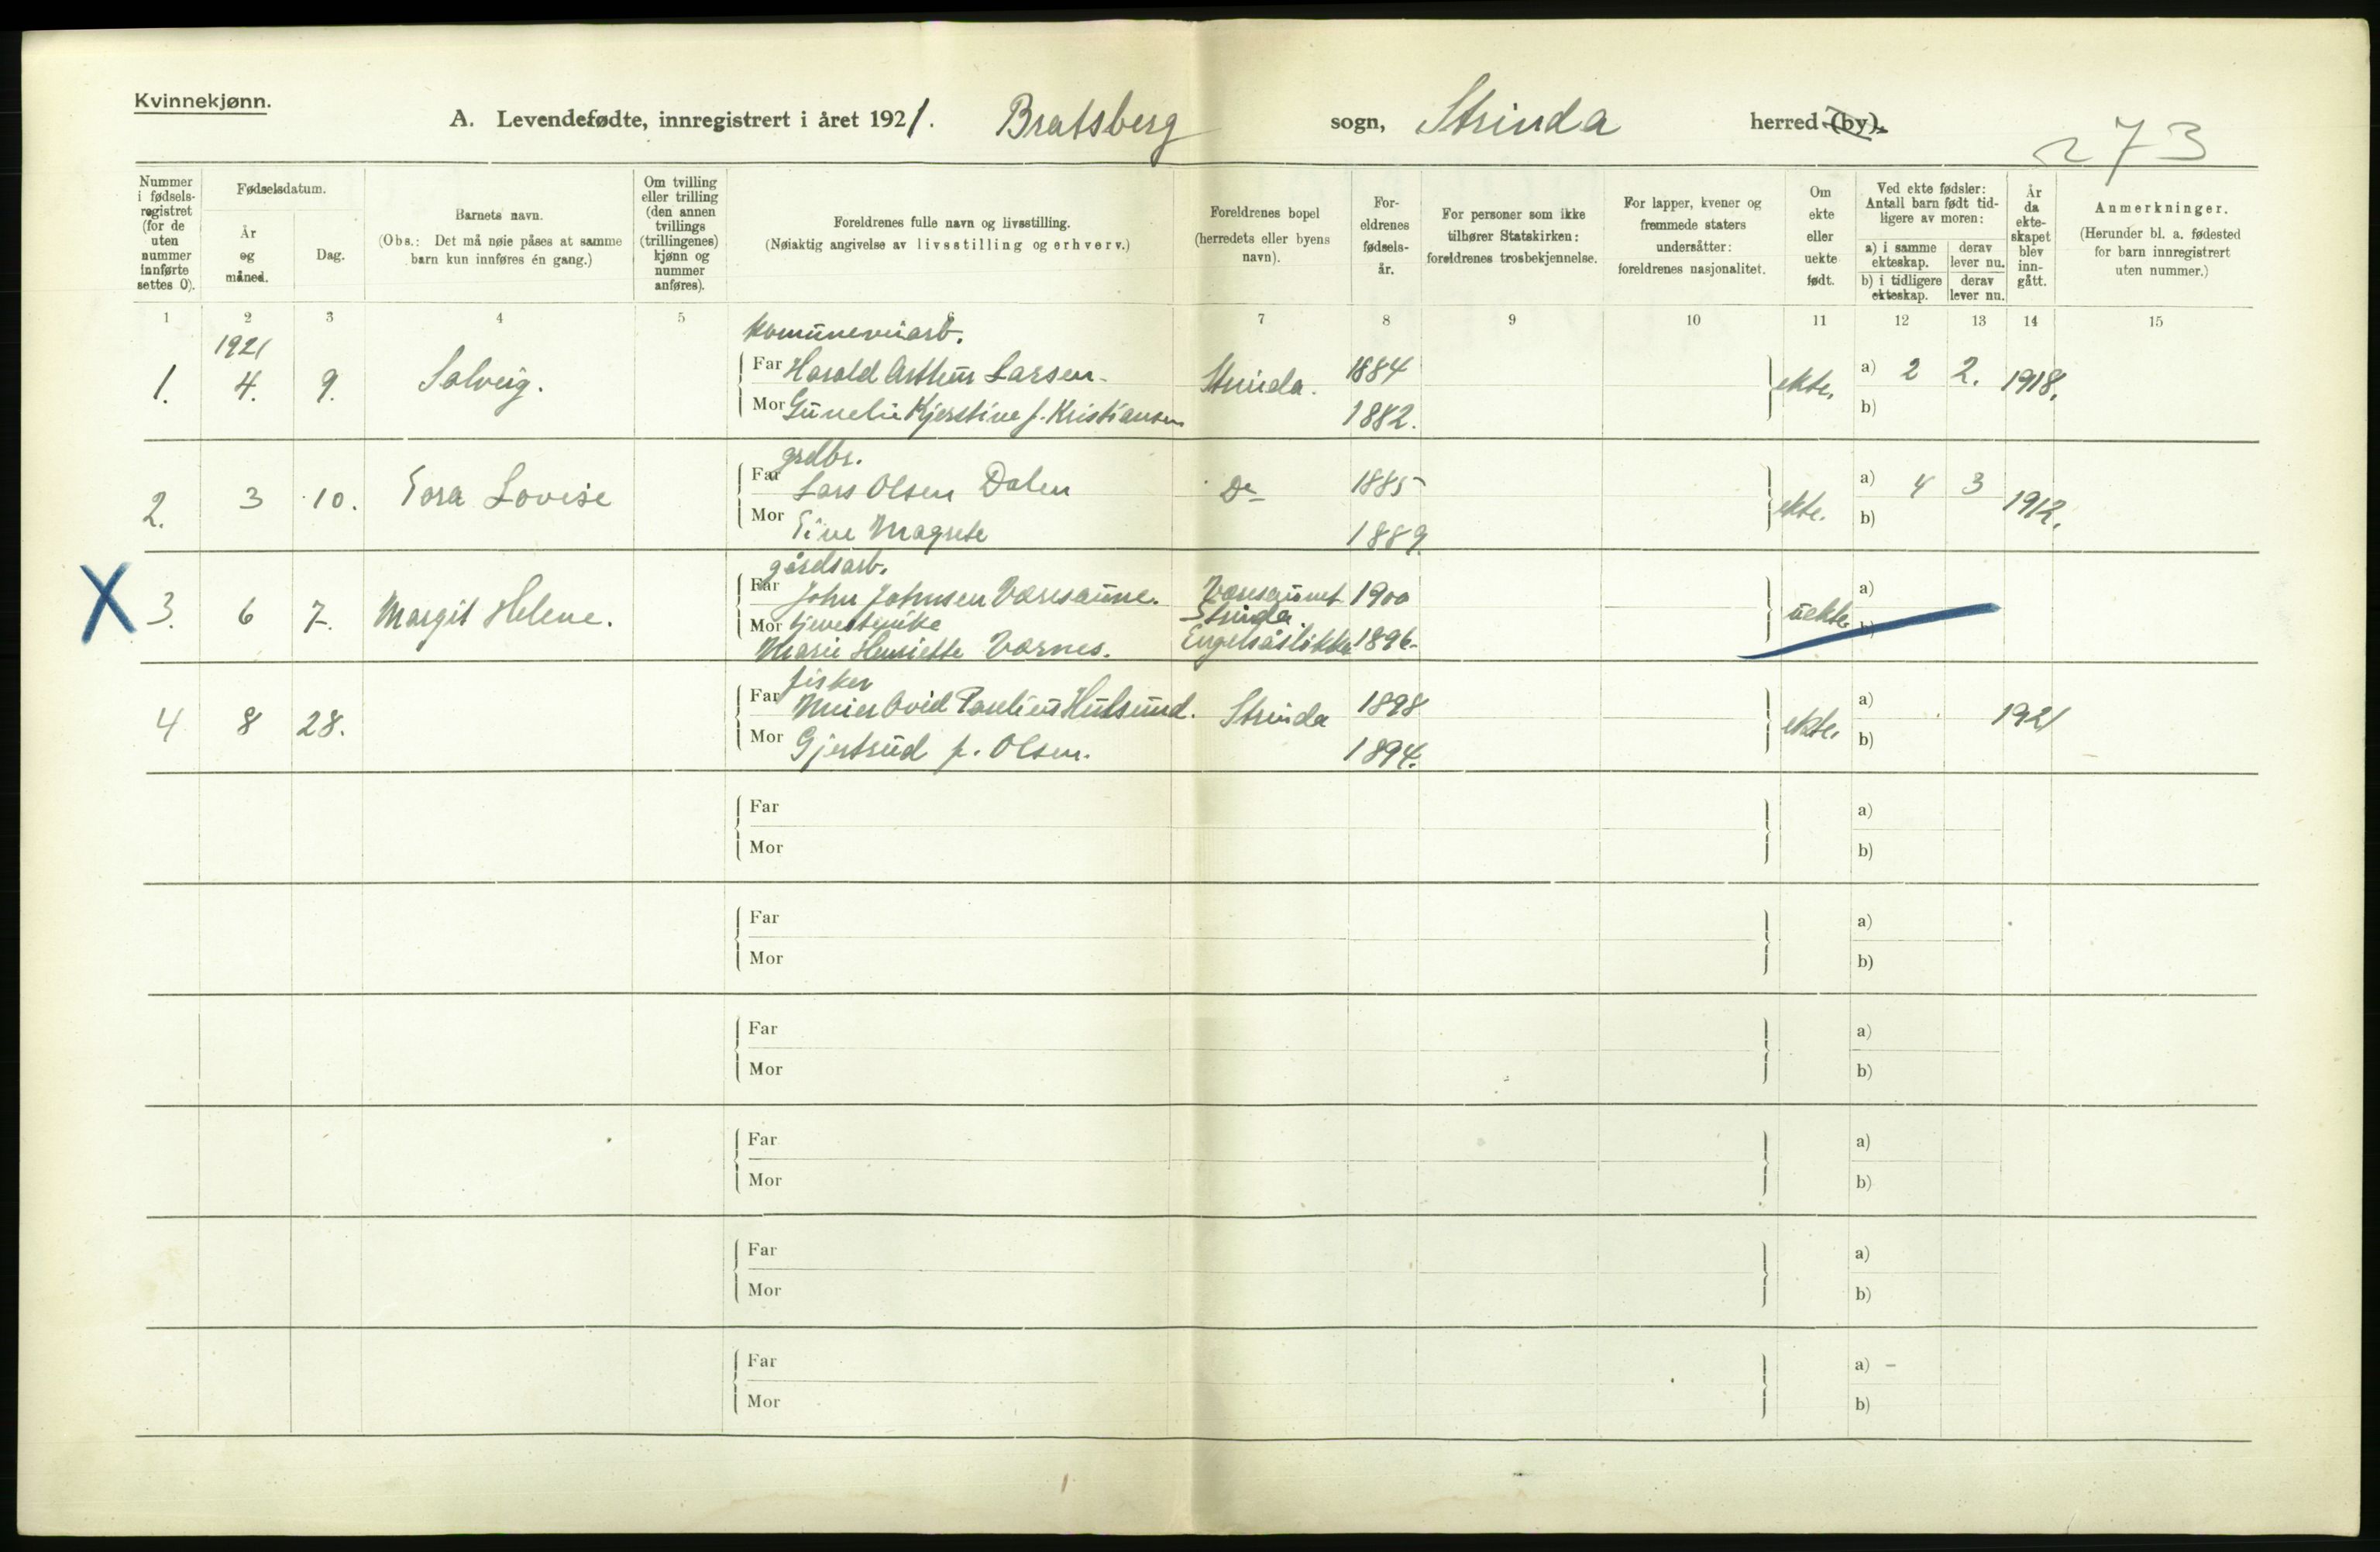 Kvinnekjønn.
A. Levendefødte, innregistrert i året 1921. Bratsberg sogn, Strinda herred (by).
273
Nummer i fødsels-registret (for de uten nummer innførte settes 0).
Fødselsdatum.
År og måned.
Dag.
Barnets navn.
(Obs.: Det må nøie påses at samme barn kun innføres én gang.)
Om tvilling eller trilling (den annen tvillings (trillingenes) kjønn og nummer anføres).
Foreldrenes fulle navn og livsstilling.
(Nøiaktig angivelse av livsstilling og erhverv.)
Foreldrenes bopel (herredets eller byens navn).
For-eldrenes fødsels-år.
For personer som ikke tilhører Statskirken: foreldrenes trosbekjennelse.
For lapper, kvener og fremmede staters undersåtter: foreldrenes nasjonalitet.
Om ekte eller uekte født.
Ved ekte fødsler: Antall barn født tid-ligere av moren:
a) i samme ekteskap.
derav lever nu.
b) i tidligere ekteskap.
derav lever nu.
År da ekte-skapet blev inn-gått.
Anmerkninger.
(Herunder bl. a. fødested for barn innregistrert uten nummer.)
1 2 3 4 5 6 7 8 9 10 11 12 13 14 15
1921
komuneveiarb.
1. 4. 9. Solveig. Far Harald Arthur Larsen Strinda. 1884 ekte. a) 2 2. 1918.
Mor Kjerstine f. Kristiansen 1882. b)
grdbr.
2. 3 10. Tora Lovise Far Lars Olsen Dalen Do 1885 ekte. a) 4 3 1912.
Mor Tine Magrete 1889. b)
gårdsarb.
X 3. 6 7. Margit Helene. Far John Johnsen Væresaune. Væresaunet Strinda. 1900 uekte a)
Mor tjenestepike
Marie Henriette Værnes. 1896. b)
fisker
4 8 28. Far Meier Ovid Paulius Hulsund. Strinda 1898 ekte. a) 1921
Mor Gjertrud f. Olsen. 1894. b)
Far a)
Mor b)
Far a)
Mor b)
Far a)
Mor b)
Far a)
Mor b)
Far a)
Mor b)
Far a) -
Mor b)